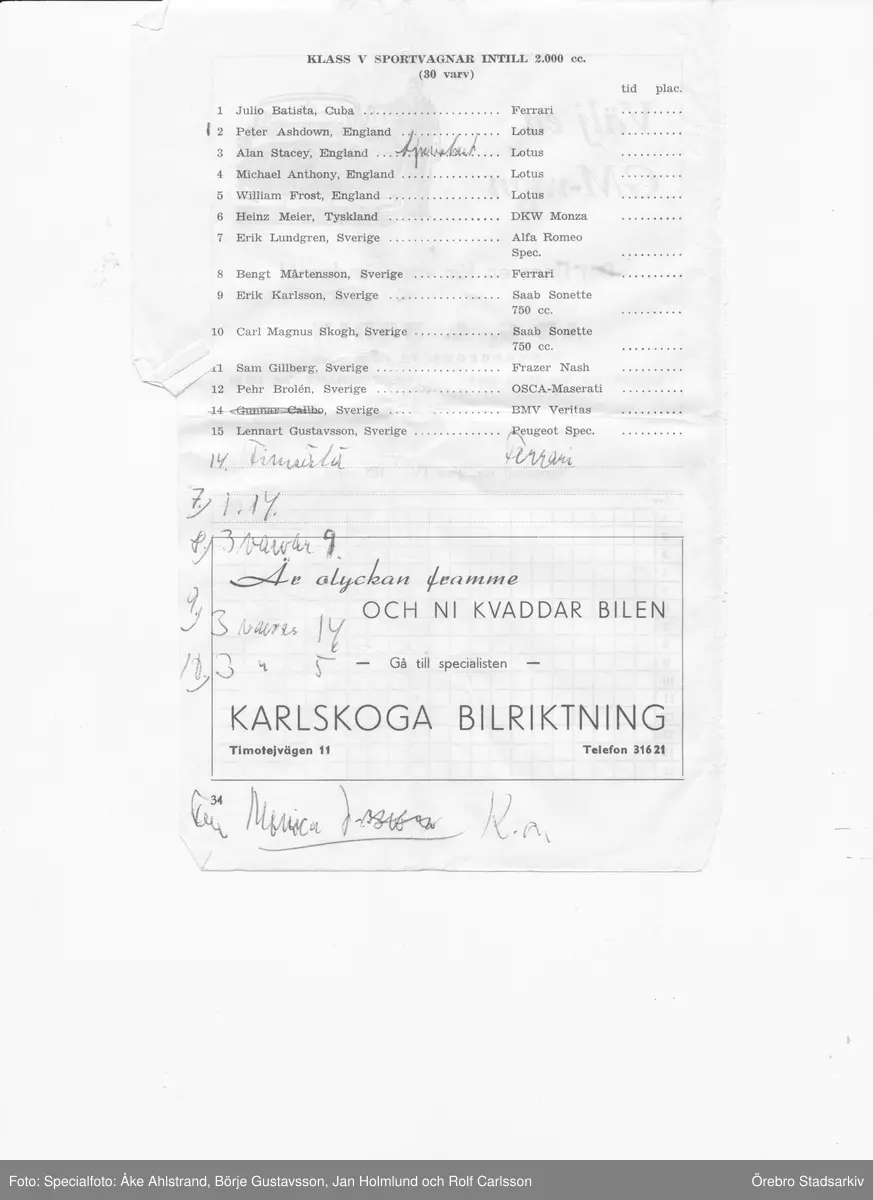 KLASS V SPORTVAGNAR INTILL 2.000 cc.
(30 varv)
tid plac.
1 Julio Batista, Cuba ...................... Ferrari ..........
2 Peter Ashdown, England ................ Lotus ..........
3 Alan Stacey, England .................... Lotus ..........
4 Michael Anthony, England ................ Lotus ..........
5 William Frost, England .................. Lotus ..........
6 Heinz Meier, Tyskland .................. DKW Monza ..........
7 Erik Lundgren, Sverige .................. Alfa Romeo
Spec. ..........
8 Bengt Mårtensson, Sverige .............. Ferrari ..........
9 Erik Karlsson, Sverige .................. Saab Sonette
750 cc. ..........
10 Carl Magnus Skogh, Sverige .............. Saab Sonette
750 cc. ..........
11 Sam Gillberg, Sverige .................... Frazer Nash ..........
12 Pehr Brolén, Sverige .................... OSCA-Maserati ..........
14 Gunnar Callbo, Sverige .... ............ BMV Veritas ..........
15 Lennart Gustavsson, Sverige .............. Peugeot Spec. ..........
14. Ferrari
7.) 1. 14.
8.) 3 varvar 9.
Är olyckan framme
OCH NI KVADDAR BILEN
9.) 3 14
10.) 3 " 5
— Gå till specialisten —
KARLSKOGA BILRIKTNING
Timotejvägen 11 Telefon 31621
34
Monica K.a.
Foto: Specialfoto: Åke Ahlstrand, Börje Gustavsson, Jan Holmlund och Rolf Carlsson Örebro Stadsarkiv